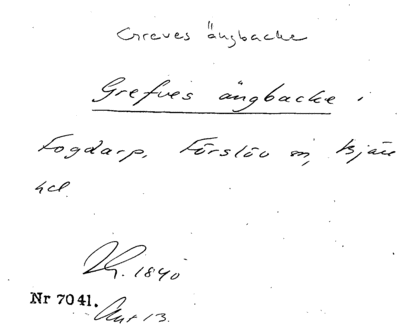 Greves ängbacke
Grefves ängbacke i
Fogdarp, Förslöv sn, Bjäre
hd.
1840
Nr 7041.
Akt 13.